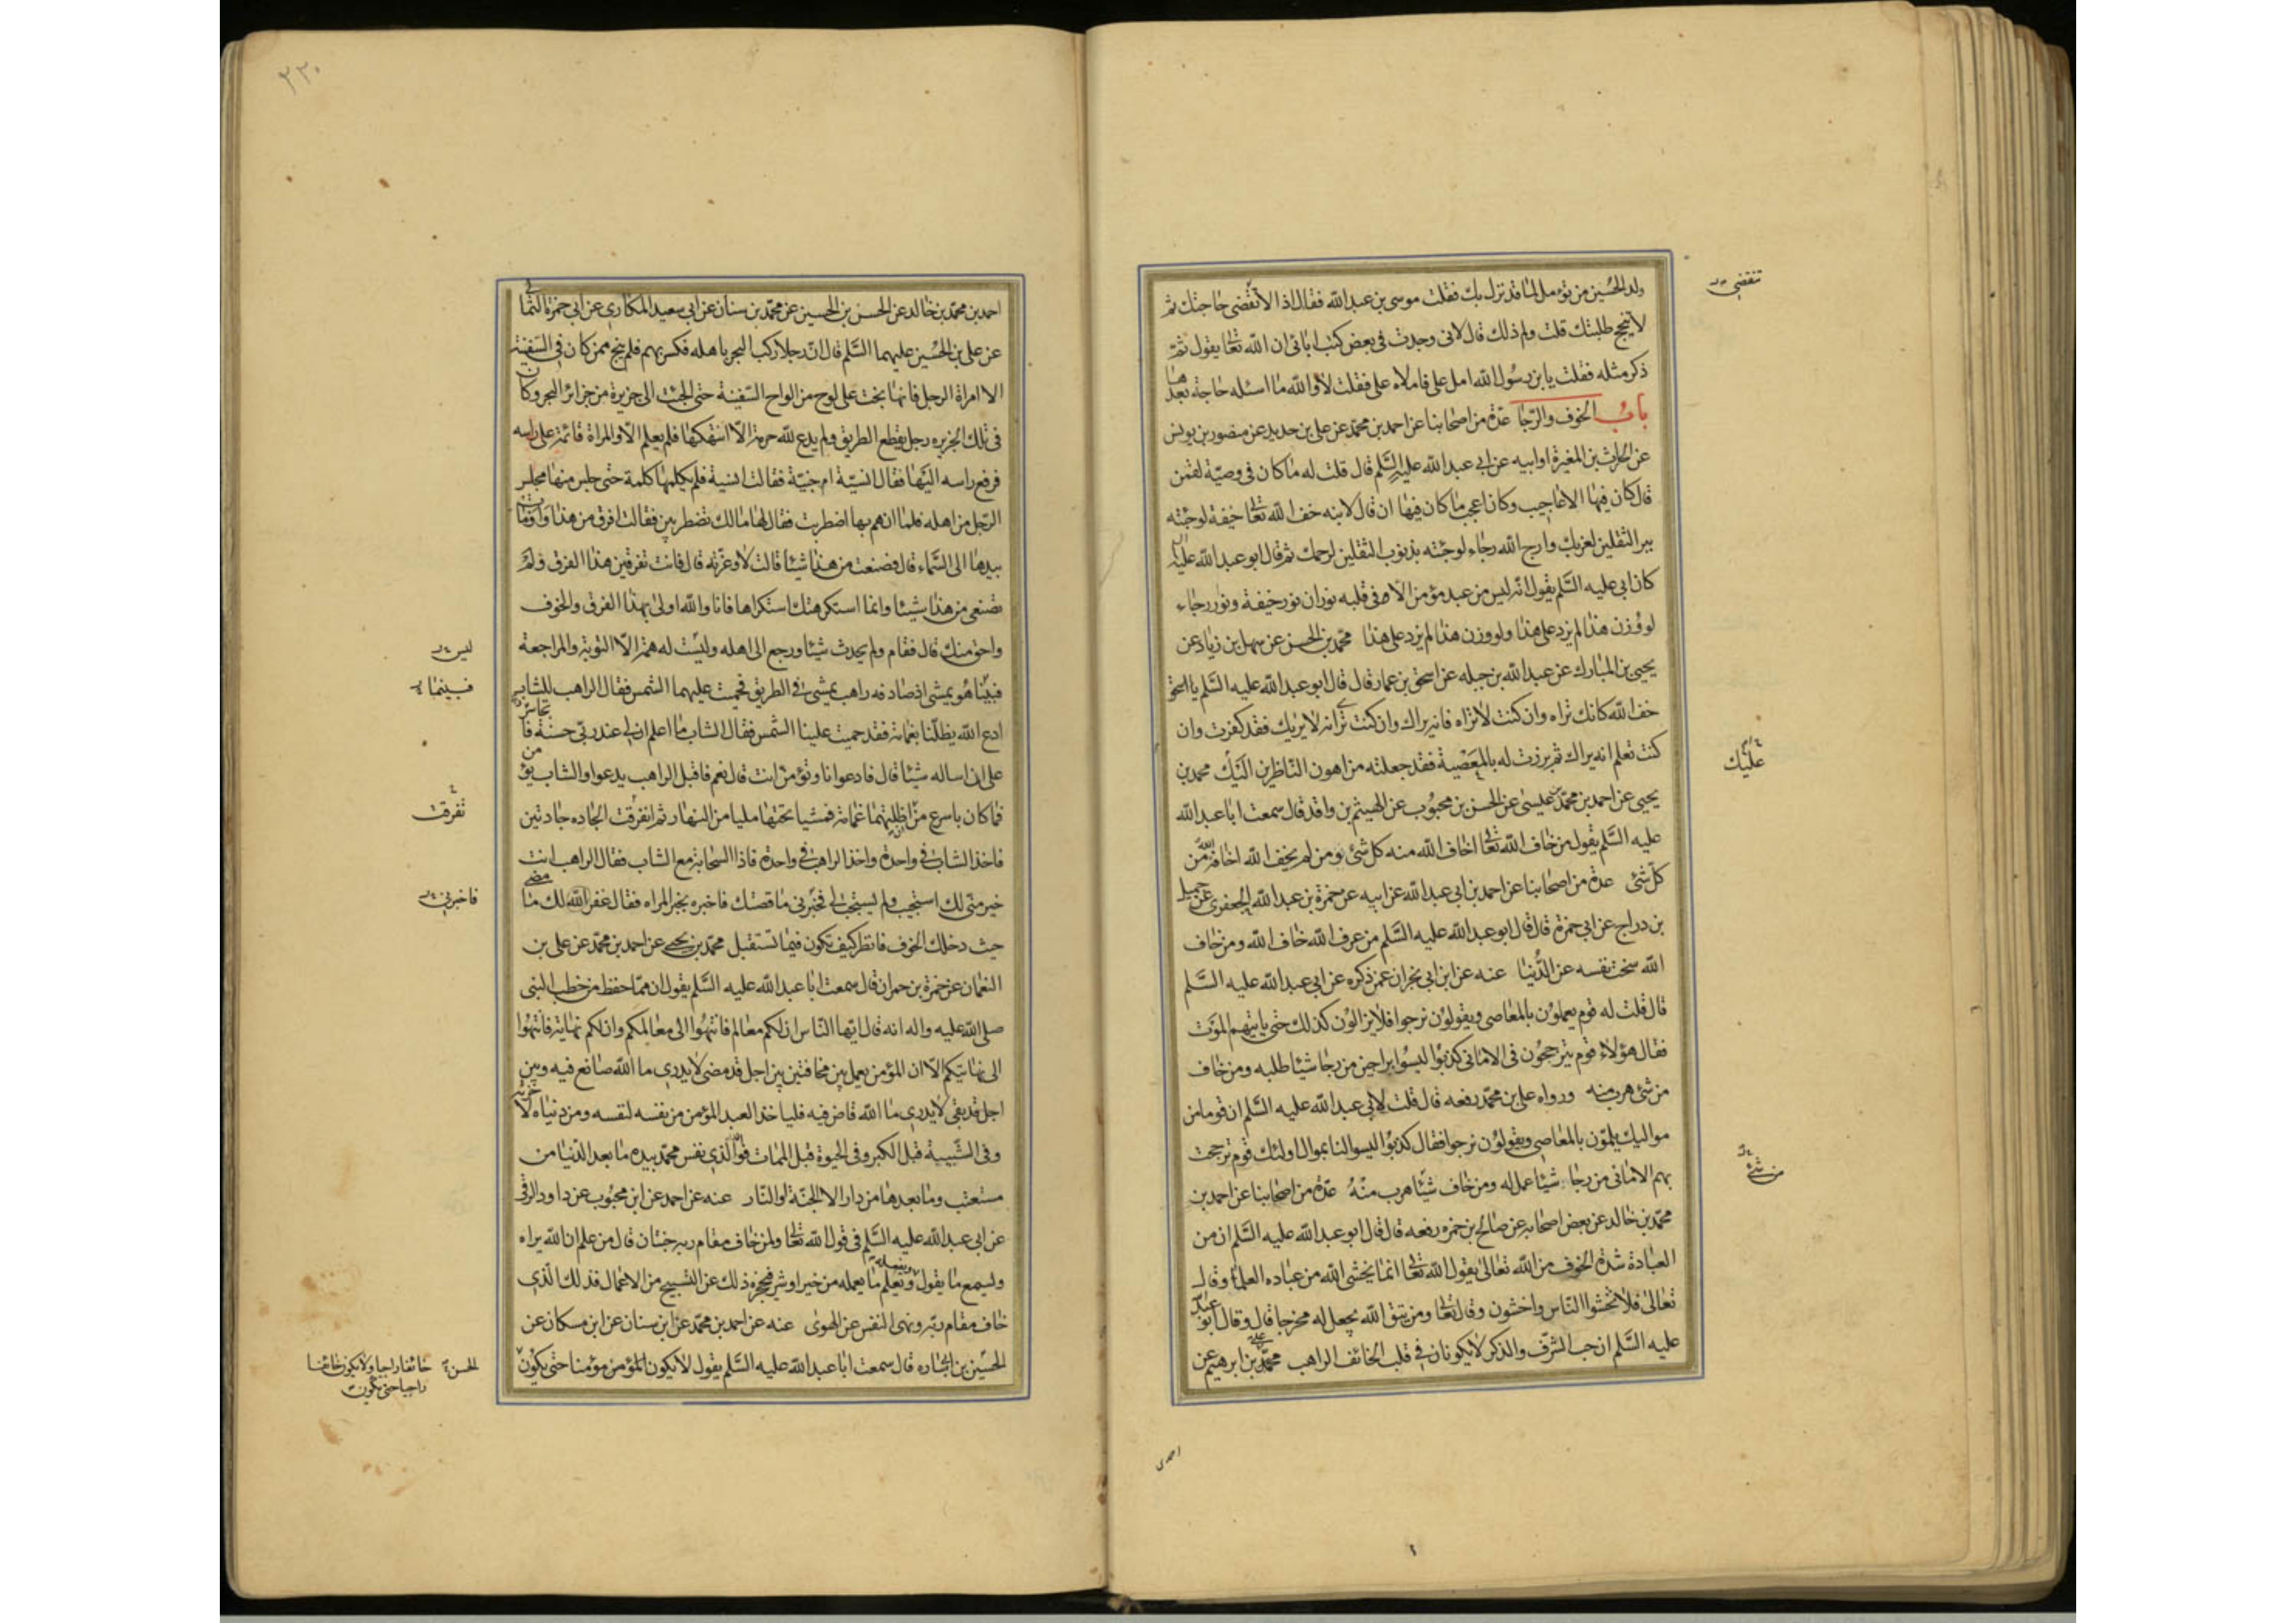 ولد الحسين من تؤمل لما قد نزل بك فقلت موسى بن عبد الله فقال اذا لا تقضى حاجتك ثم
تنقضي
لا ينجح طلبتك قلت ولم ذلك قال لانى وجدت فى بعض كتب ابائى ان الله تعا يقول ثم
ذكر مثله فقلت يابن رسول الله امل على فاملاه على فقلت لا والله ما اسئله حاجة بعدها
باب الخوف والرجا عدة من اصحابنا عن احمد بن محمد عن على بن حديد عن منصور بن يونس
عن الحارث بن المغيرة او ابيه عن ابى عبد الله عليه السلم قال قلت له ما كان فى وصية لقمن
قال كان فيها الاعاجيب وكان اعجب ما كان فيها ان قال لابنه خف الله تعا خيفة لو جئته
ببر الثقلين لعذبك وارج الله رجاء لو جئته بذنوب الثقلين لرحمك ثم قال ابو عبد الله عليه
كان ابى عليه السلم يقول انه ليس من عبد مؤمن الا فى قلبه نوران نور خيفة ونور رجاء
لو وزن هذا لم يزد على هذا ولو وزن هذا لم يزد على هذا محمد بن الحسن عن سهل بن زياد عن
يحيى بن المبارك عن عبد الله بن جبله عن اسحق بن عمار قال قال ابو عبد الله عليه السلم يا اسحق
خف الله كانك تراه وان كنت لا تراه فانه يراك وان كنت ترى انه لا يريك فقد كفرت وان
كنت تعلم انه يراك ثم برزت له بالمعصية فقد جعلته من اهون الناظرين اليك محمد بن
عليك
يحيى عن احمد بن محمد بن عيسى عن الحسن بن محبوب عن الهيثم بن واقد قال سمعت ابا عبد الله
عليه السلم يقول من خاف الله تعا اخاف الله منه كل شئ ومن لم يخف الله اخافه الله من
كل شئ عدة من اصحابنا عن احمد بن ابى عبد الله عن ابيه عن حمزة بن عبد الله الجعفرى عن جميل
بن دراج عن ابى حمزة قال قال ابو عبد الله عليه السلم من عرف الله خاف الله ومن خاف
الله سخت نفسه عن الدنيا عنه عن ابن ابى نجران عمن ذكره عن ابى عبد الله عليه السلم
قال قلت له قوم يعملون بالمعاصى ويقولون نرجوا فلا يزالون كذلك حتى ياتيهم الموت
فقال هؤلاء قوم يترجحون فى الامانى كذبوا ليسوا براجين من رجا شيئا طلبه ومن خاف
من شئ هرب منه ورواه على بن محمد رفعه قال قلت لابى عبد الله عليه السلم ان قوما من
مواليك يلمون بالمعاصى ويقولون نرجوا فقال كذبوا ليسوا لنا بموال اولئك قوم ترجحت
بهم الامانى من رجا شيئا عمل له ومن خاف شيئا هرب منه عدة من اصحابنا عن احمد بن
من شئ
محمد بن خالد عن بعض اصحابه عن صالح بن حمزه رفعه قال قال ابو عبد الله عليه السلم ان من
العبادة شدة الخوف من الله تعالى يقول الله تعا انما يخشى الله من عباده العلماء وقال
تعالى فلا تخشوا الناس واخشون وقال تعا ومن يتق الله يجعل له مخرجا قال وقال ابو عبد الله
عليه السلم ان حب الشرف والذكر لا يكونان فى قلب الخائف الراهب محمد بن ابرهيم عن
احمد بن
٢٣٠
احمد بن محمد بن خالد عن الحسن بن الحسين عن محمد بن سنان عن ابى سعيد المكارى عن ابى حمزة الثمالى
عن على بن الحسين عليهما السلم قال ان رجلا ركب البحر باهله فكسر بهم فلم ينج ممن كان فى السفينة
الا امراة الرجل فانها نجت على لوح من الواح السفينة حتى الجئت الى جزيرة من جزائر البحر وكان
فى تلك الجزيره رجل يقطع الطريق ولم يدع لله حرمة الا انتهكها فلم يعلم الا والمراة قائمة على راسه
فرفع راسه اليها فقال انسية ام جنية فقالت انسية فلم يكلمها كلمة حتى جلس منها مجلس
الرجل من اهله فلما ان هم بها اضطربت فقال لها مالك تضطربين فقالت افرق من هذا واومات
بيدها الى السماء قال فصنعت من هذا شيئا قالت لا وعزته قال فانت تفرقين هذا الفرق ولم
تصنعى من هذا شيئا وانما استكرهتك استكراها فانا والله اولى بهذا الفرق والخوف
واحق منك قال فقام ولم يحدث شيئا ورجع الى اهله وليست له همة الا التوبة والمراجعة
ليس
فبينا هو يمشى اذ صادفه راهب يمشى فى الطريق فحميت عليهما الشمس فقال الراهب للشاب
فبينما
ادع الله يظلنا بغمامة فقد حميت علينا الشمس فقال الشاب ما اعلم ان لى عند ربى حسنة فاتجاسر
على ان اساله شيئا قال فادعوا انا وتؤمن انت قال نعم فاقبل الراهب يدعوا والشاب يؤمن
فما كان باسرع من ان اظلتهما غمامة فمشيا تحتها مليا من النهار ثم انفرقت الجاده جادتين
تفرقت
فاخذ الشاب فى واحدة واخذ الراهب فى واحدة فاذا السحابة مع الشاب فقال الراهب انت
خير منى لك استجيب ولم يستجب لى فخبرنى ما قصتك فاخبره بخبر المراه فقال غفر الله لك ما مضى
فاخبرني
حيث دخلك الخوف فانظر كيف تكون فيما تستقبل محمد بن يحيى عن احمد بن محمد عن على بن
النعمان عن حمزة بن حمران قال سمعت ابا عبد الله عليه السلم يقول ان مما حفظ من خطب النبى
صلى الله عليه واله انه قال ايها الناس ان لكم معالم فانتهوا الى معالمكم وان لكم نهاية فانتهوا
الى نهايتكم الا ان المؤمن يعمل بين مخافتين بين اجل قد مضى لا يدرى ما الله صانع فيه وبين
اجل قد بقى لا يدرى ما الله قاض فيه فلياخذ العبد المؤمن من نفسه لنفسه ومن دنياه لاخرته
وفى الشبيبة قبل الكبر وفى الحيوة قبل الممات فوالذى نفس محمد بيده ما بعد الدنيا من
مستعتب وما بعدها من دار الا الجنة او النار عنه عن احمد عن ابن محبوب عن داود الرقى
عن ابى عبد الله عليه السلم فى قول الله تعا ولمن خاف مقام ربه جنتان قال من علم ان الله يراه
ويسمع ما يقول ويعلم ما يعمله من خير او شر فيحجزه ذلك عن القبيح من الاعمال فذلك الذى
خاف مقام ربه ونهى النفس عن الهوى عنه عن احمد بن محمد عن ابن سنان عن ابن مسكان عن
الحسين بن ابى ساره قال سمعت ابا عبد الله عليه السلم يقول لا يكون المؤمن مؤمنا حتى يكون
الحسن خائفا راجيا ولا يكون خائفا
راجيا حتى يكون